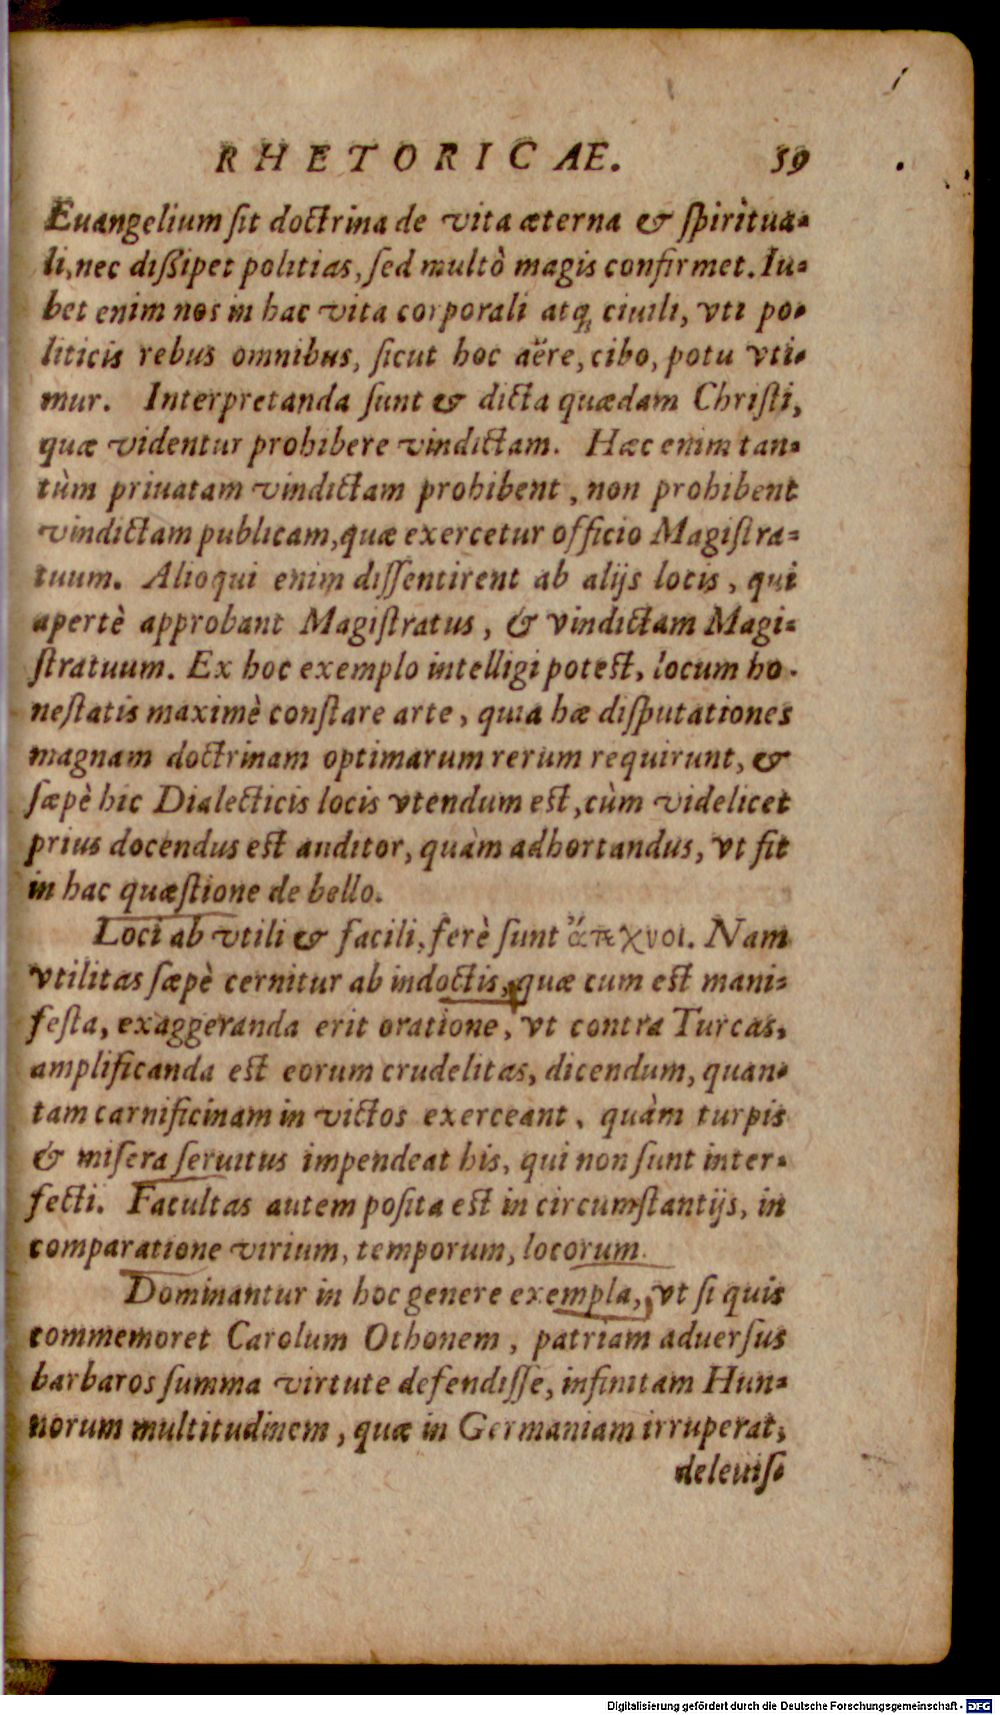 RHETORICAE. 59
Euangelium ſit doctrina de vita æterna & ſpiritua-
li, nec diſsipet politias, ſed multò magis confirmet. Iu-
bet enim nos in hac vita corporali atq; ciuili, vti po-
liticis rebus omnibus, ſicut hoc aëre, cibo, potu vti-
mur. Interpretanda ſunt & dicta quædam Chriſti,
quæ videntur prohibere vindictam. Hæc enim tan-
tùm priuatam vindictam prohibent, non prohibent
vindictam publicam, quæ exercetur officio Magiſtra-
tuum. Alioqui enim diſſentirent ab alijs locis, qui
apertè approbant Magiſtratus, & vindictam Magi-
ſtratuum. Ex hoc exemplo intelligi poteſt, locum ho-
neſtatis maximè conſtare arte, quia hæ diſputationes
magnam doctrinam optimarum rerum requirunt, &
ſæpè hic Dialecticis locis vtendum eſt, cùm videlicet
prius docendus eſt auditor, quàm adhortandus, vt fit
in hac quæſtione de bello.
Loci ab vtili & facili, ferè ſunt ἄτεχνοι. Nam
vtilitas ſæpè cernitur ab indoctis, quæ cum eſt mani-
feſta, exaggeranda erit oratione, vt contra Turcas,
amplificanda eſt eorum crudelitas, dicendum, quan-
tam carnificinam in victos exerceant, quàm turpis
& miſera ſeruitus impendeat his, qui non ſunt inter-
fecti. Facultas autem poſita eſt in circumſtantijs, in
comparatione virium, temporum, locorum.
Dominantur in hoc genere exempla, vt ſi quis
commemoret Carolum Othonem, patriam aduerſus
barbaros ſumma virtute defendiſſe, infinitam Hun-
norum multitudinem, quæ in Germaniam irruperat,
deleuiſ-
Digitalisierung gefördert durch die Deutsche Forschungsgemeinschaft - DFG